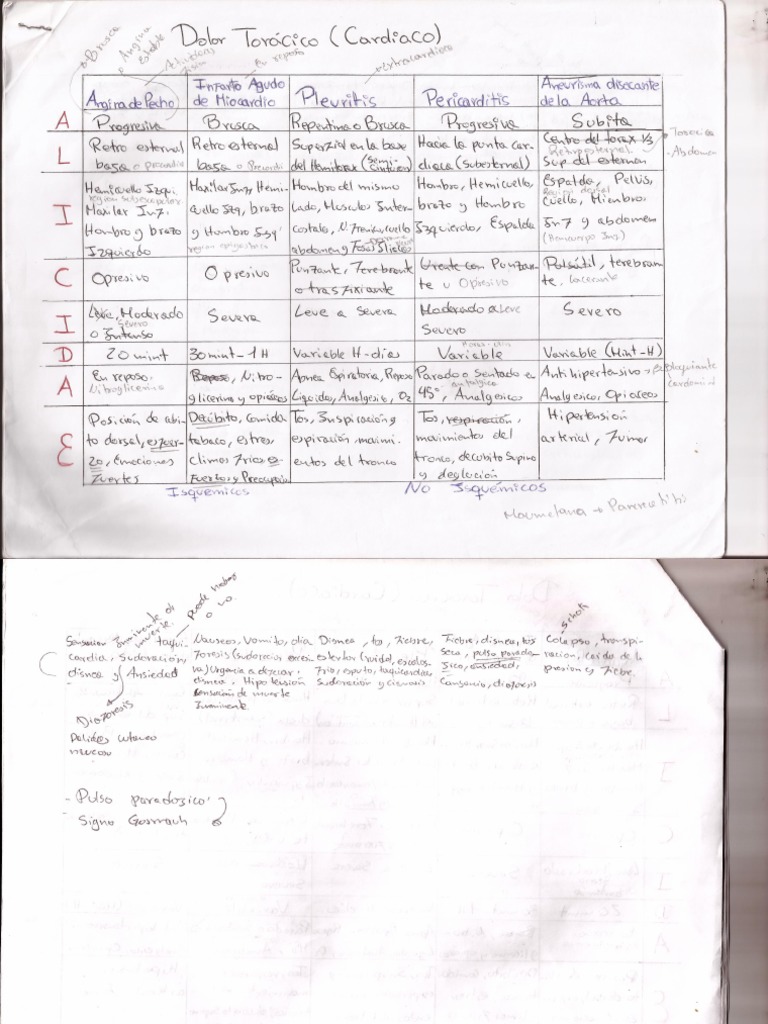 Dolor Torácico (Cardiaco)
Brusca
Angina
estable
En reposo
extracardiaco
Angina de Pecho
Infarto Agudo
de Miocardio
Pleuritis
Pericarditis
Aneurisma disecante
de la Aorta
A
Progresiva
Brusca
Repentina o Brusca
Progresiva
Subita
L
Retro esternal
basa o precordial
Retro esternal
basa o Precordi
Superzial en la base
del Hemitorax (Semi
cinturon)
Hacia la punta car
diaca (Subesternal)
Centro del torax 1/3
Retroesternal
Sup del esternon
Toracica
-Abdomen
I
Hemicuello Izqui.
region subescapular
Maxilar Inf.
Hombro y brazo
Izquierdo
Maxilar Inf, Hemi-
cuello Izq, brazo
y Hombro Izq
region epigastrica
Hombro del mismo
lado, Musculos Inter-
costale,
abdomen y Fosas Iliacas
Hombro, Hemicuello,
brazo y Hombro
Izquierdo, Espalda
Espalda, Pelvis,
Region dorsal
Cuello, Miembro,
Inf y abdomen
C
Opresivo
Opresivo
Punzante, Terebrante
o trasfixiante
Urente con Punzan-
te u Opresivo
Pulsátil, terebran-
te, lacerante
I
Leve, Moderado
Severo
o Intenso
Severa
Leve a severa
Moderado a Leve
Severo
Severo
D
20 mint
30 mint - 1H
Variable H-dia
Horas-dia
Variable
Variable (Mint-H)
A
En reposo.
Nitroglicerina
Reposo, Nitro-
glicerina y opiáceos
Apnea Espiratoria, Reposo
Liquido, Analgesio, O2
Parado o Sentado a
antalgica
45°, Analgesicos
Antihipertensivo →
Analgesico, Opiaceos
E
Posición de abi
to dorsal, esfuer-
zo, Emociones
Fuertes
Decúbito, comida
tabaco, estres,
Climas Frios, es-
fuertos y Preocupación
Tos, Inspiración y
espiración, movimi-
entos del tronco
Tos, respiración,
movimientos del
tronco, decubito Supino
y deglución
Hipertensión
arterial, Tumor
Isquémicos
No Isquémicos
→ Pancreatitis
Inminente de
muerte.
Puede Haber
o no.
Shock
C
Sensacion taqui
cardia, Sudoración,
disnea y Ansiedad
Nauseos, Vomito, dia
foresis (sudoracion excesi
va) Urgencia a defecar.
disnea, Hipotensión
sensación de muerte
Inminente.
Disnea, tos, Fiebre,
estertor (ruido), escalos-
Frio, esputo, taquicardia,
sudoración y cianosis
Fiebre, disnea, tos
seca, pulso parado-
jico, ansiedad,
Cansancio, diaforesis
Colapso, transpi-
racion, caida de la
presion y Fiebre.
Diaforesis
Palidez cutaneo
mucosa
- Pulso paradojico
Signo